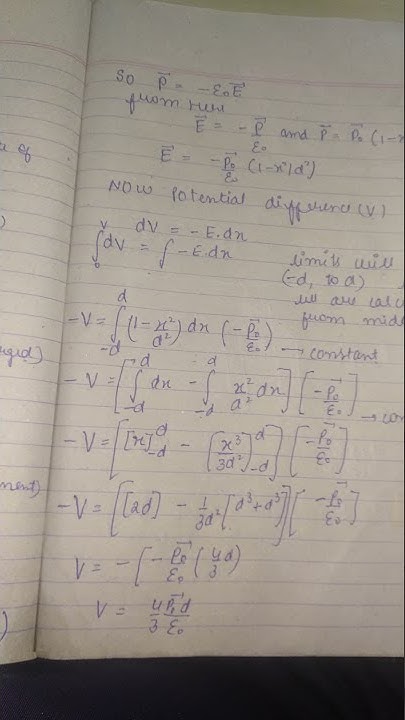 So P⃗ = -ε₀E⃗
e of
from here
E⃗ = -P⃗/ε₀ and P⃗ = P⃗₀ (1-x
E⃗ = -P⃗₀/ε₀ (1-x²/d²)
Now Potential difference (V)
)
dV = -E.dx
∫₀^V dV = ∫ -E.dx limits will
(-d, to d)
we are calcu
from mid
-V = ∫_{-d}^{d} (1 - x²/d²) dx (-P⃗₀/ε₀) → constant
rged)
-V = [∫_{-d}^{d} dx - ∫_{-d}^{d} x²/d² dx] [-P⃗₀/ε₀] → con
-V = [[x]_{-d}^{d} - [x³/3d²]_{-d}^{d}] [-P⃗₀/ε₀]
ment)
-V = [[2d] - 1/3d² [d³+d³]] [-P⃗₀/ε₀]
V = -[-P⃗₀/ε₀ (4/3 d)
V = 4/3 P⃗₀d/ε₀
)